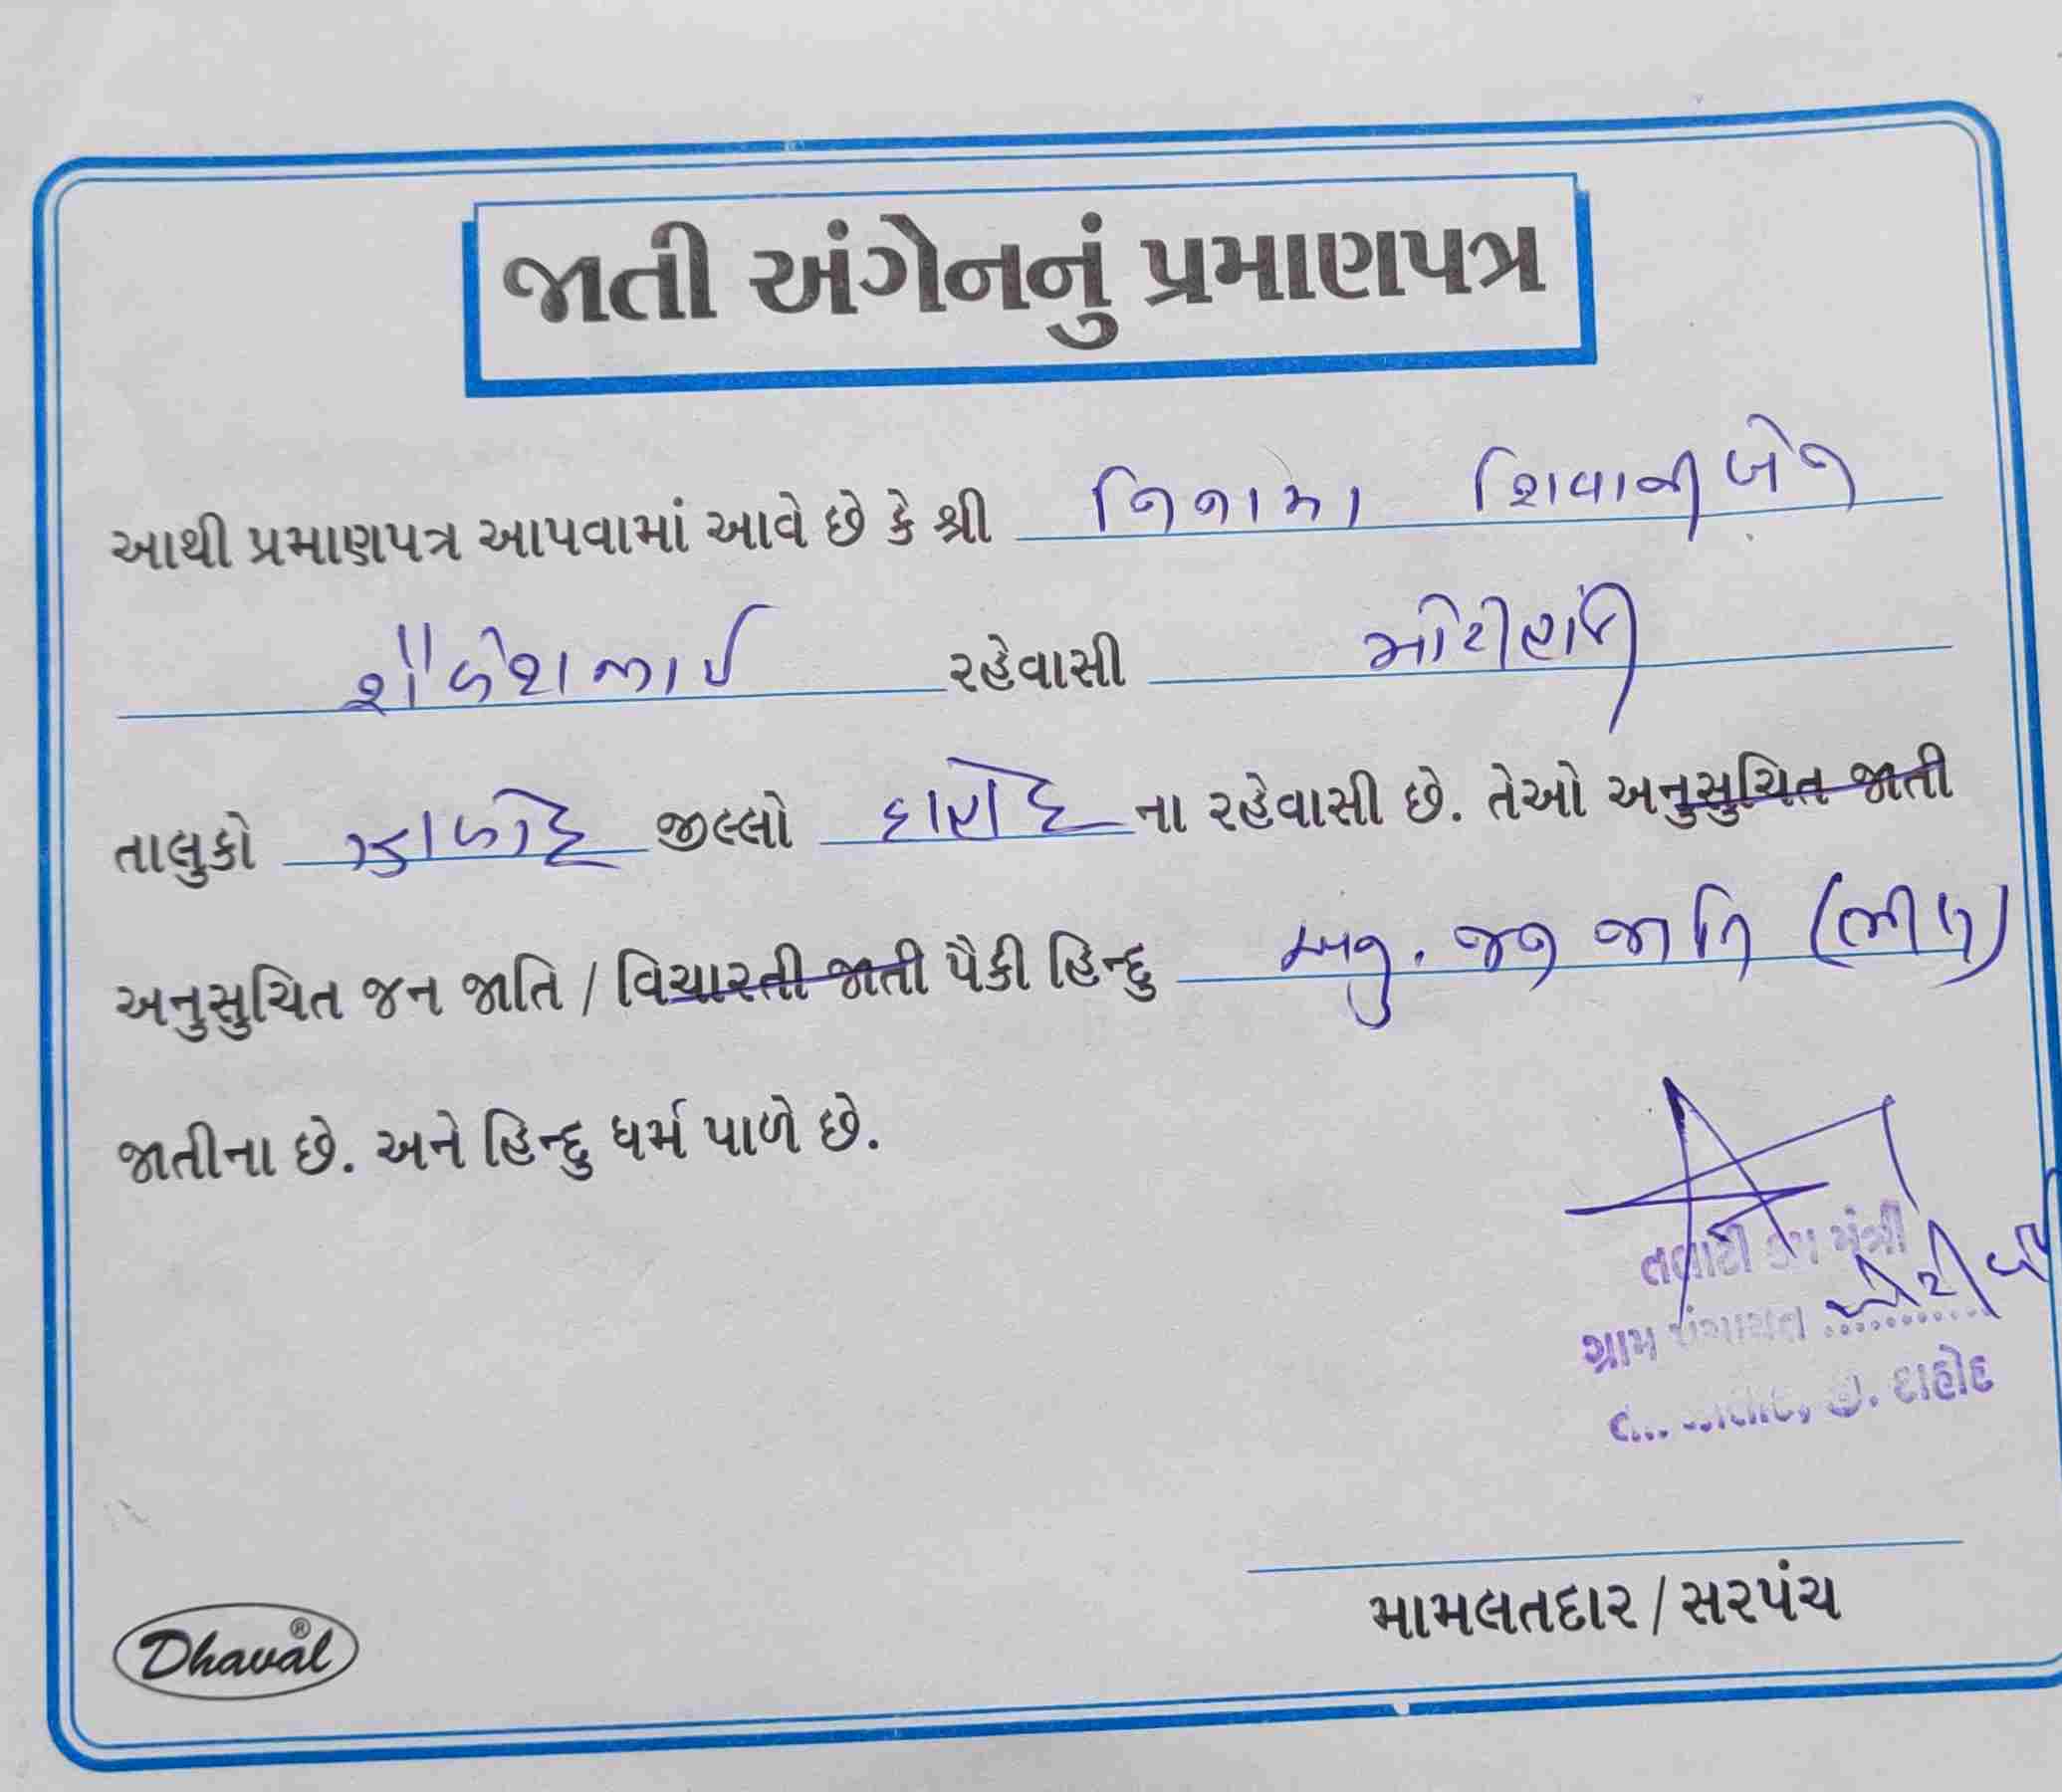 જાતી અંગેનનું પ્રમાણપત્ર
આથી પ્રમાણપત્ર આપવામાં આવે છે કે શ્રી નિનામા શિવાનીબેન
શૈલેશભાઈ રહેવાસી મોટીહાંડી
તાલુકો ઝાલોદ જીલ્લો દાહોદ ના રહેવાસી છે. તેઓ અનુસુચિત જાતી
અનુસુચિત જન જાતિ / વિચારતી જાતી પૈકી હિન્દુ અનુ. જન જાતિ (ભીલ)
જાતીના છે. અને હિન્દુ ધર્મ પાળે છે.
તલાટી કમ મંત્રી
ગ્રામ પંચાયત
જી. દાહોદ
મામલતદાર / સરપંચ
Dhaval®